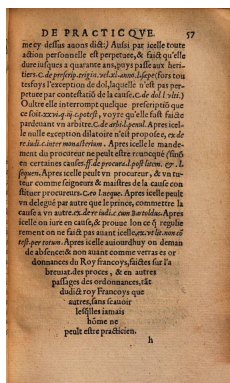 DE PRACTICQVE. 57
mecy dessus auons dict;) Aussi par icelle toute
action personnelle est perpetuee, & faict qu'elle
dure iusques a quarante ans, puys passe aux heri-
tiers. C. de prescrip. trigin. vel. xl. anno. l. sepe (fors tou
tesfoys l'exception de dol, laquelle n'est pas per-
petuee par contestatiõ de la cause. C. de dol l vlti.)
Oultre elle interrompt quelque prescriptiõ que
ce soit. xvi. q. iij. c. potest, voyre qu'elle fust faicte
pardeuant vn arbitre. C. de arbi. l. penul. Apres icel-
le nulle exception dilatoire n'est proposee, ex de
re iudi. c. inter monasterium. Apres icelle le mande-
ment du procureur ne peult estre reuocqué (sinõ
en certaines causes. ff. de procura. l. post litem. &
sequen. Apres icelle peult vn procureur, & vn tu-
teur comme seigneurs & maistres de la cause con
stituer procureurs. C. eo l. neque. Apres icelle peult
vn delegué par autre que le prince, commettre la
cause a vn autre. ex de re iudic. cum Bertoldus. Apres
icelle on iure en cause, & prouue lon ce q̃ regulie
rement on ne faict pas auant icelle. ex. vt lit. non cõ
test. per totum. Apres icelle auiourdhuy on deman
de absence: & non auant comme verras es or
donnances du Roy francoys, faictes sur l'a
breuiat. des proces, & en autres
passages des ordonnances, tãt
dudict roy Francoys que
autres, sans scauoir
lesq̃lles iamais
hõme ne
peult estre practicien.
h